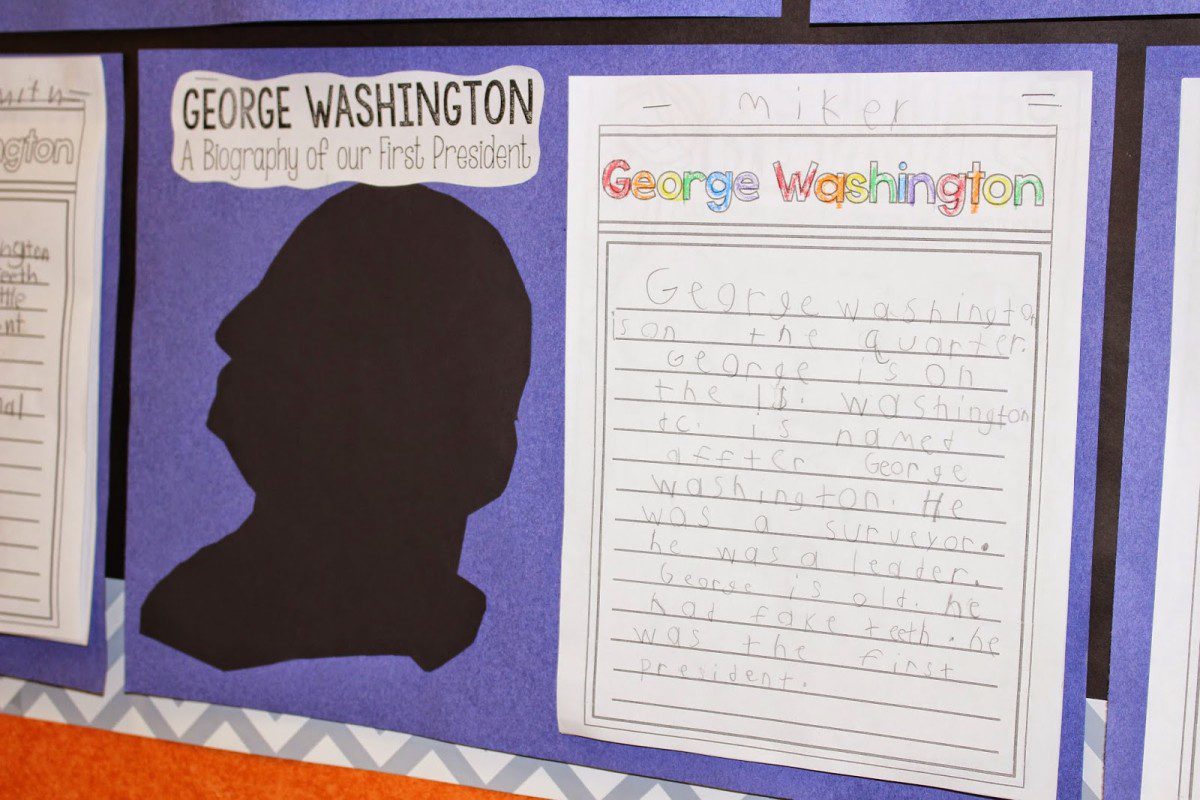 mith
ngton
hington
teeth
ttle
ent
nal
GEORGE WASHINGTON
A Biography of our First President
- miker =
George Washington
George washington
is on the quarter.
George is on
the 1$. washington
dc. is named
affter George
washington. He
was a surveyor.
he was a leader.
George is old. he
had fake teeth. he
was the first
president.